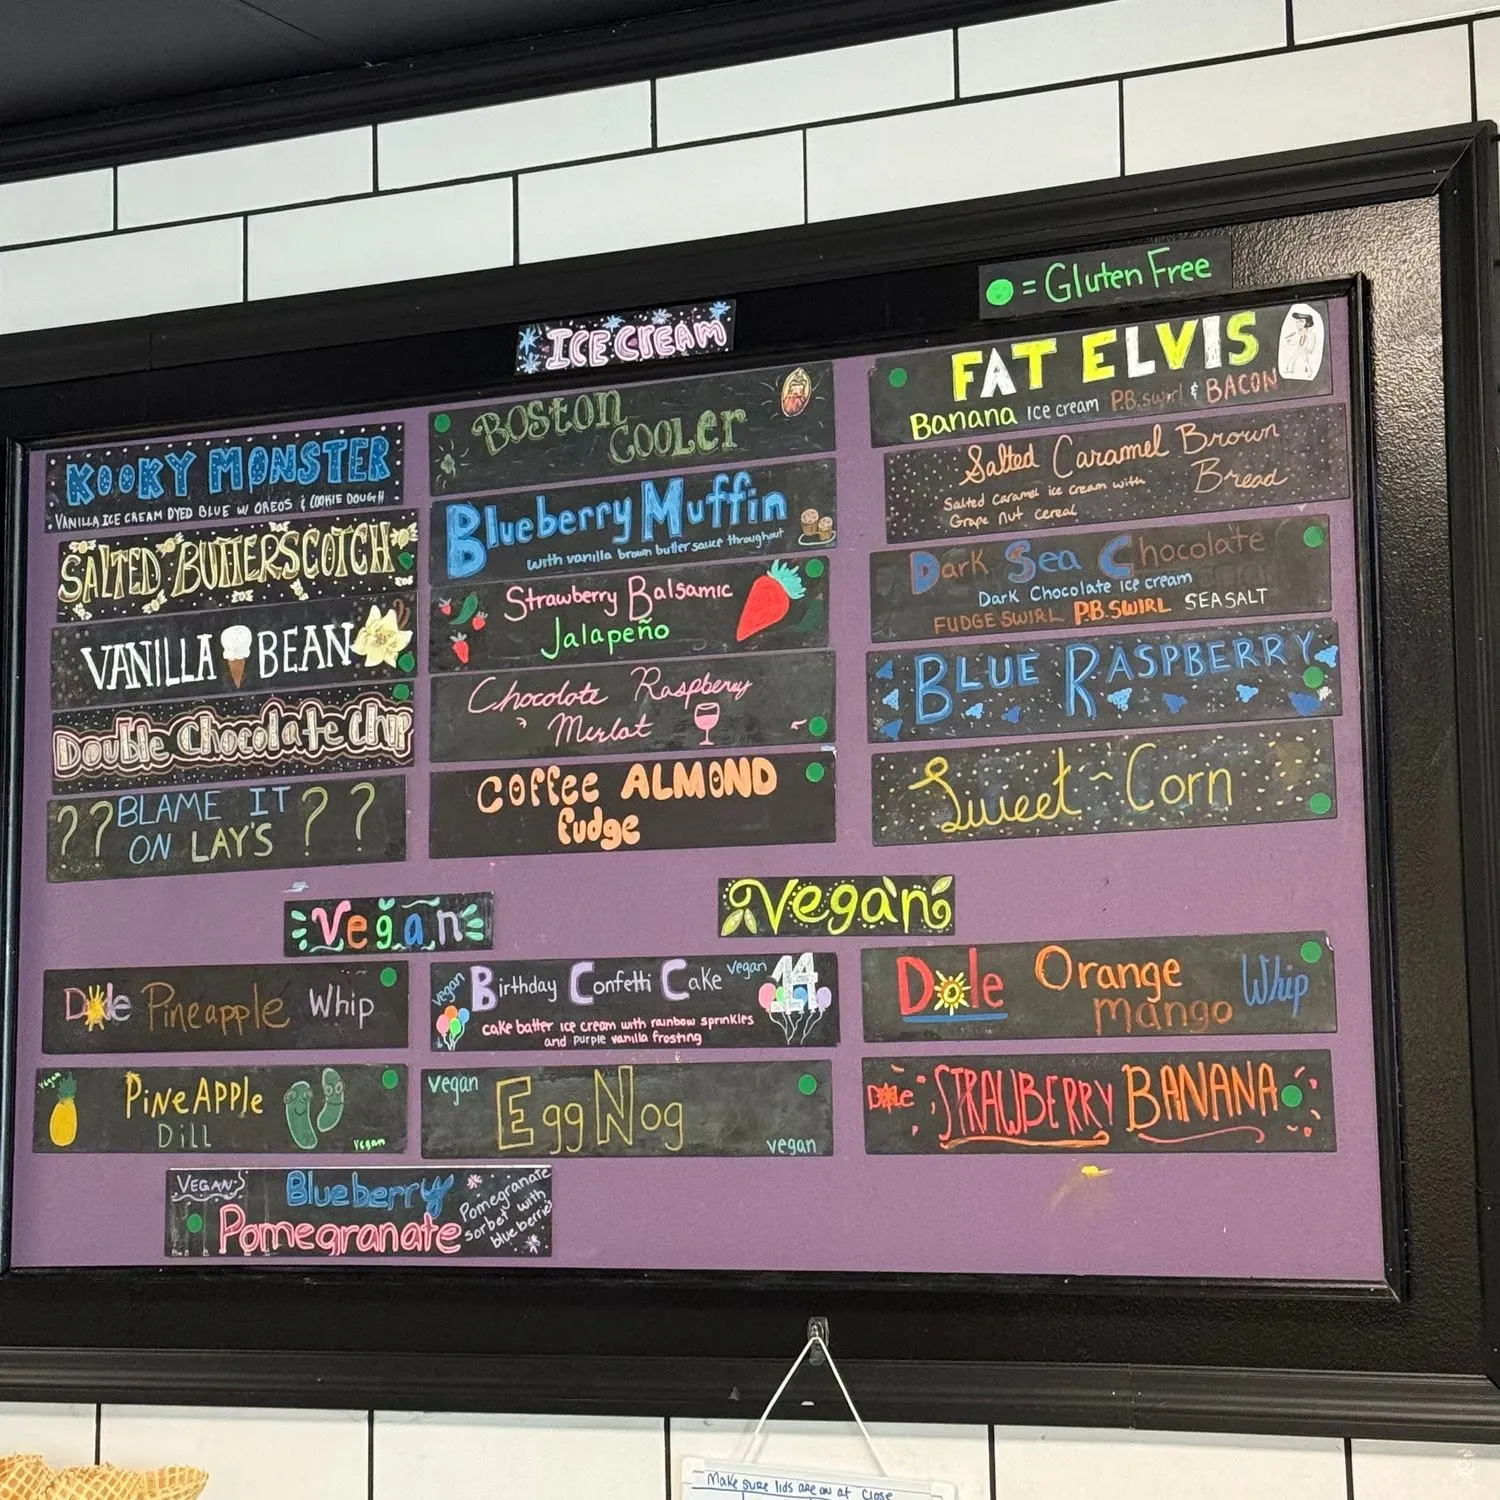 ● = Gluten Free
ICE CREAM
KOOKY MONSTER
VANILLA ICE CREAM DYED BLUE W/ OREOS & COOKIE DOUGH
SALTED BUTTERSCOTCH
VANILLA BEAN
Double Chocolate Chip
?? BLAME IT ? ?
ON LAY'S
BOSTON
COOLER
Blueberry Muffin
with vanilla brown butter sauce throughout
Strawberry Balsamic
Jalapeño
Chocolate Raspberry
Merlot
Coffee ALMOND
fudge
FAT ELVIS
Banana Ice cream P.B. swirl & BACON
Salted Caramel Brown
Bread
Salted Caramel ice cream with
Grape nut cereal
Dark Sea Chocolate
Dark Chocolate ice cream
FUDGE SWIRL P.B. SWIRL SEA SALT
BLUE RASPBERRY
Sweet~Corn
Vegan
Vegan
Dole Pineapple Whip
vegan
PiNeAPPle
Dill
vegan
vegan Birthday Confetti Cake vegan 14
cake batter ice cream with rainbow sprinkles
and purple vanilla frosting
vegan
Egg Nog
vegan
Dole Orange Whip
mango
Dole STRAWBERRY BANANA
VEGAN
Blueberry
Pomegranate
Pomegranate
sorbet with
blueberries
Make sure lids are on at close